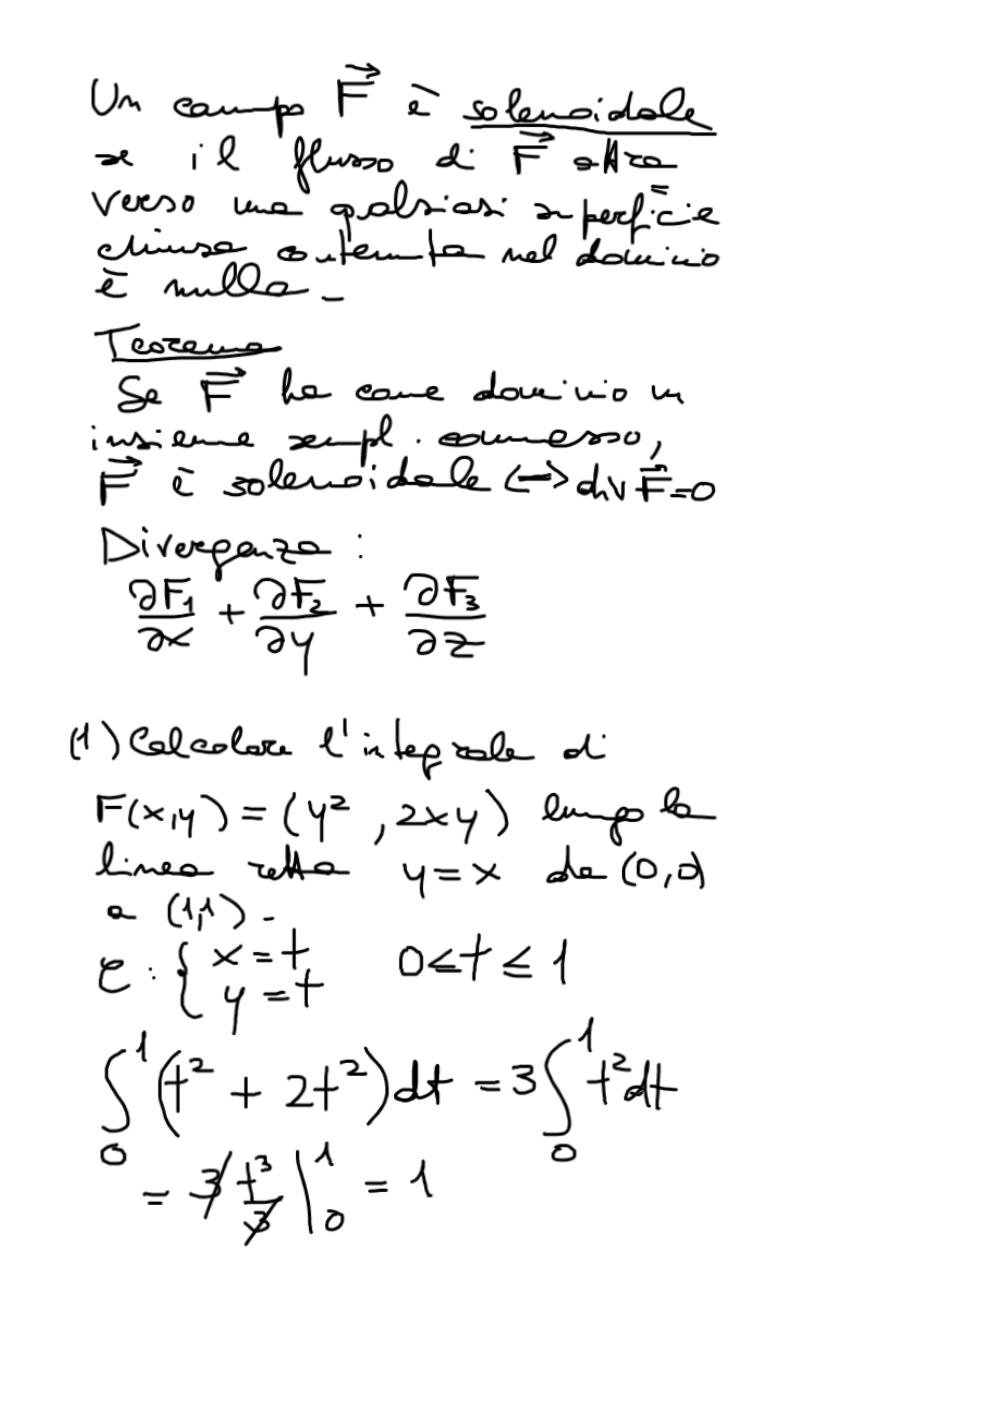 Un campo F⃗ è solenoidale
se il flusso di F⃗ attra
verso una qalsiasi superficie
chiusa contenuta nel dominio
è nullo -
Teorema
Se F⃗ ha come dominio un
insieme sempl. connesso,
F⃗ è solenoidale <-> div F⃗ = 0
Divergenza :
∂F₁/∂x + ∂F₂/∂y + ∂F₃/∂z
(1) Calcolare l'integrale di
F(x,y) = (y², 2xy) lungo la
linea retta y = x da (0,0)
a (1,1) -
C : { x = t y = t 0 ≤ t ≤ 1
∫₀¹ (t² + 2t²) dt = 3 ∫₀¹ t² dt
= 3 t³/3 |₀¹ = 1